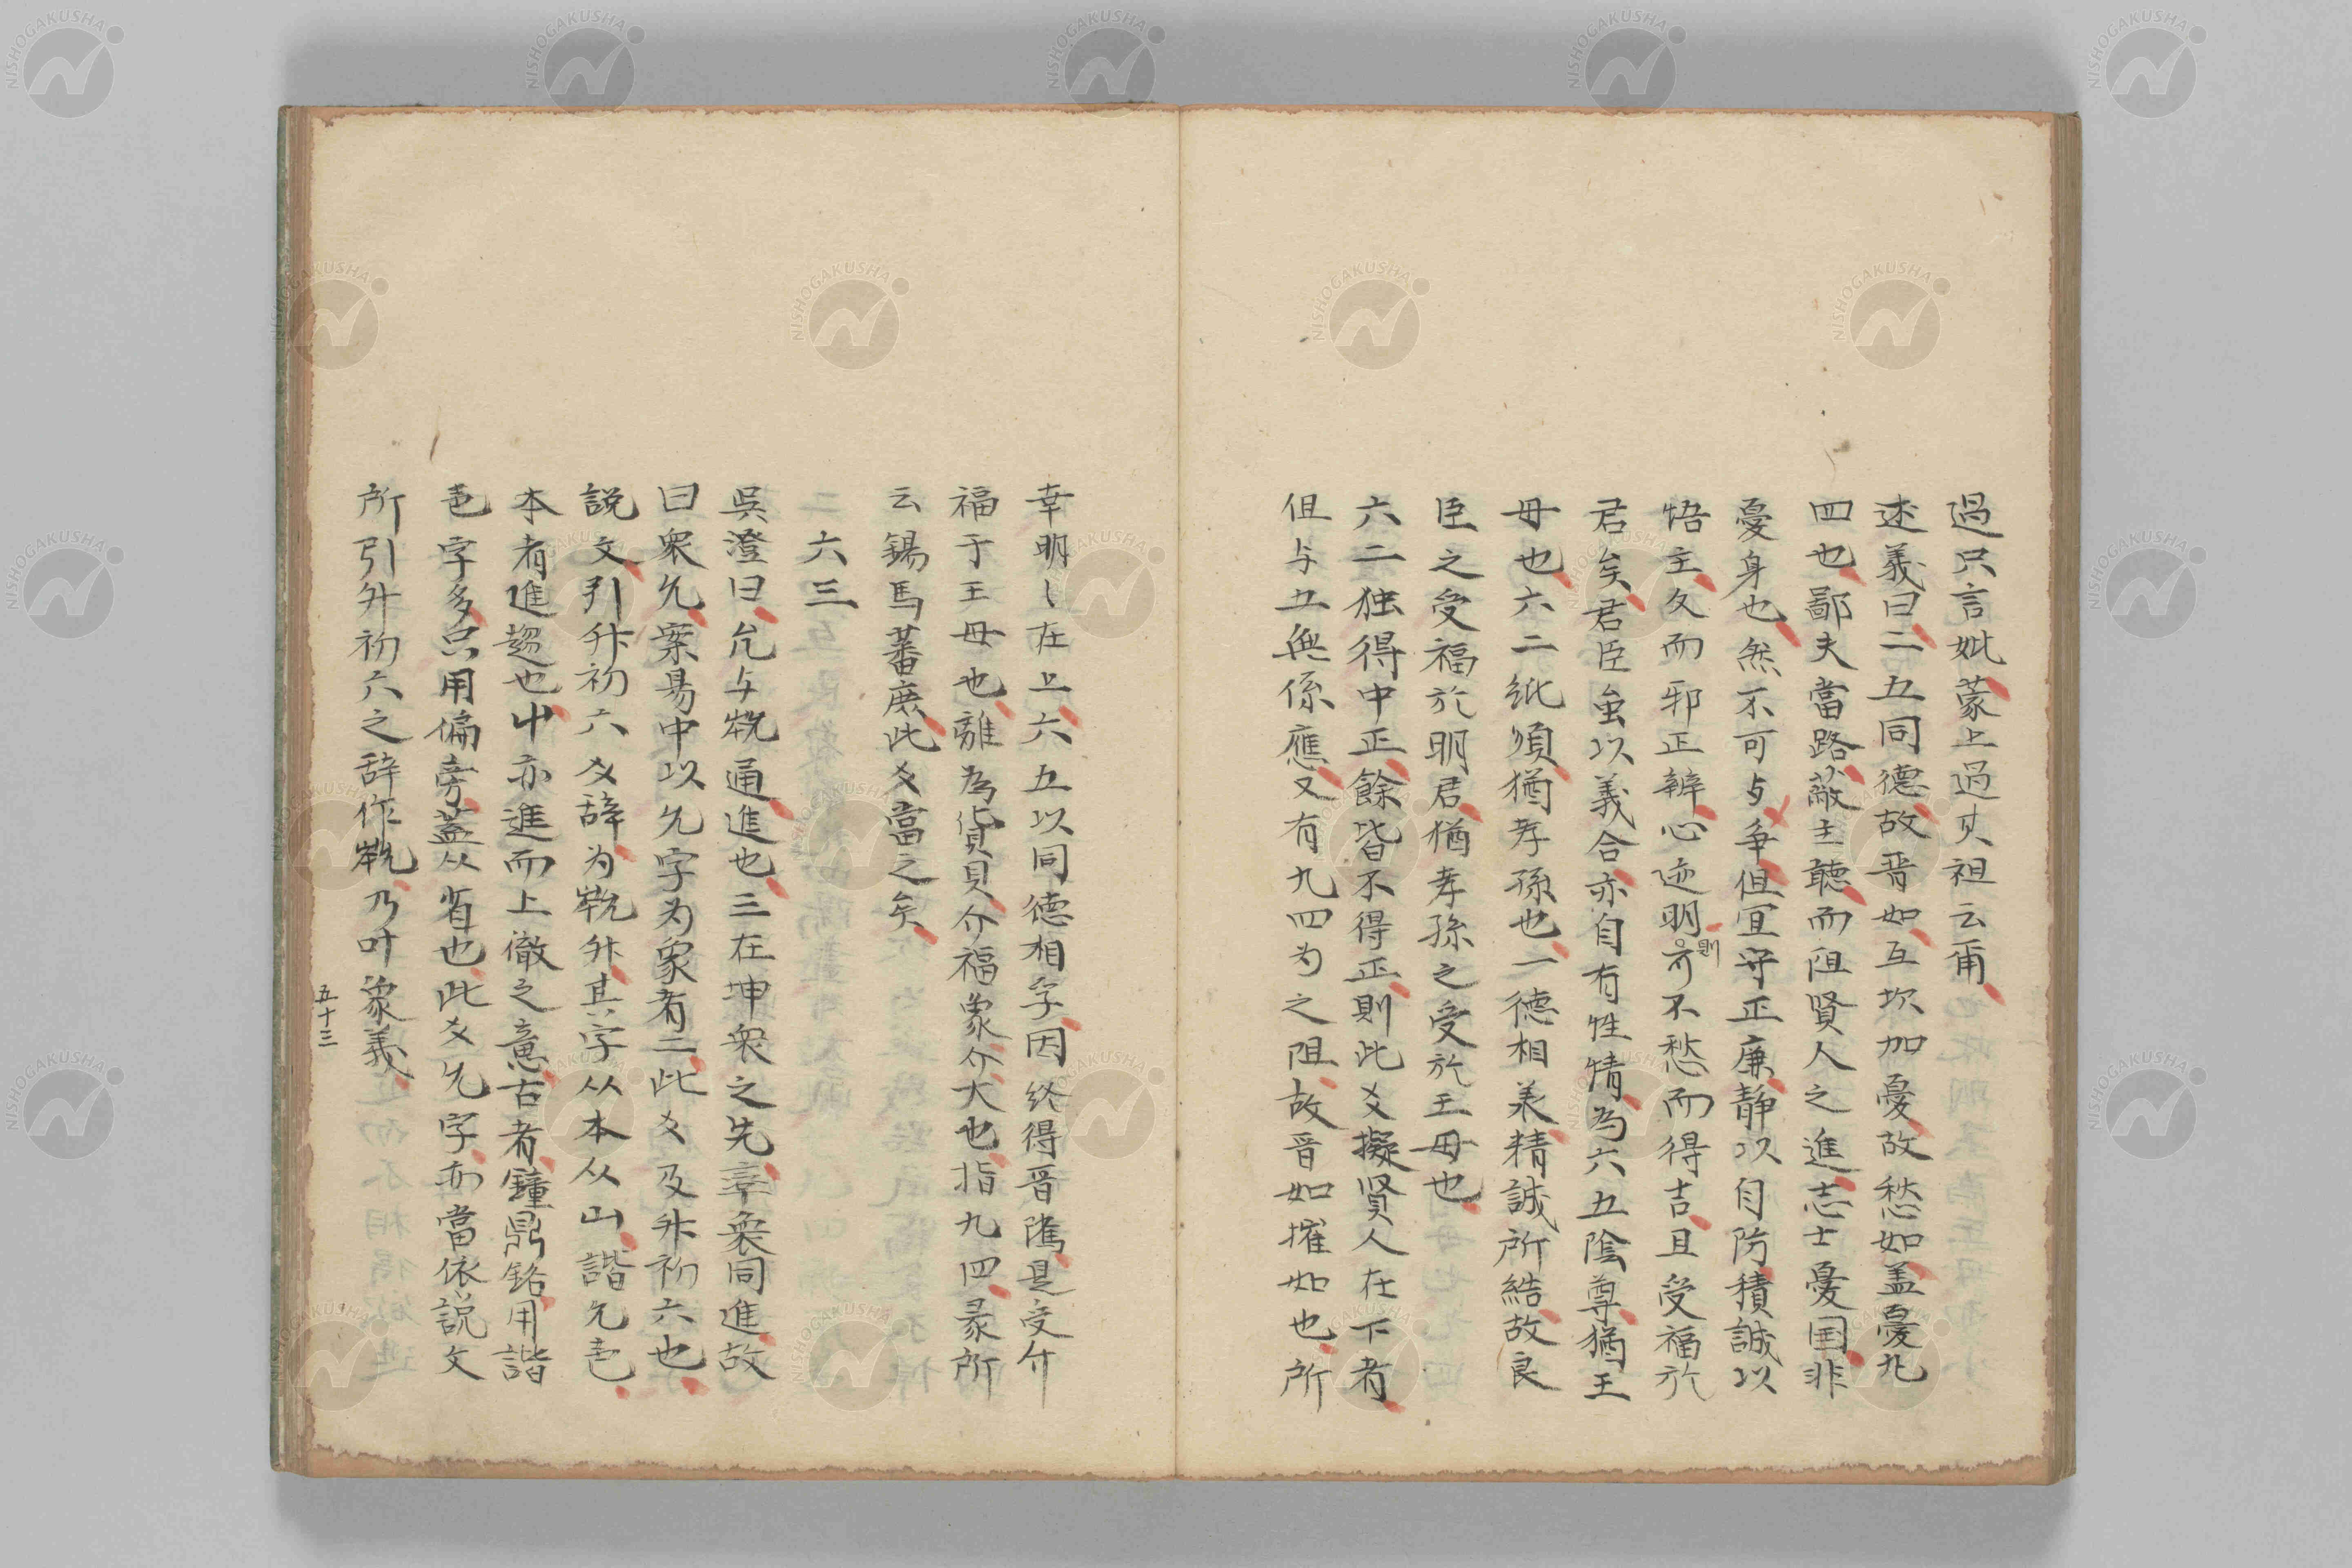 過只言妣蒙上過其祖云甭
述義曰二五同德故晋如互坎加憂故愁如盖憂九
四也鄙夫當路蔽主聽而阻賢人之進志士憂国非
憂身也然不可与争但宜守正廉静以自防積誠以
悟主久而邪正辨心迹明則不愁而得吉且受福於
君矣君臣虽以義合亦自有性情為六五陰尊猶王
母也六二純順猶孝孫也一德相羕精誠所結故良
臣之受福於明君猶孝孫之受於王母也
六二独得中正餘皆不得正則此爻擬賢人在下者
但与五無係應又有九四为之阻故晋如摧如也所
幸明〻在上六五以同德相孚因终得晋隲是受介
福于王母也離為貨貝介福象介大也指九四彖所
云錫馬蕃庶此爻當之矣
二六三
吳澄曰允与㽙通進也三在坤衆之先率衆同進故
曰衆允案易中以允字为象者二此爻及升初六也
說文引升初六爻辞为㽙升其字从本从屮諧允声
本者進趨也屮亦進而上徹之意古者鐘鼎銘用諧
声字多只用偏旁蓋从省也此爻允字亦當依說文
所引升初六之辞作㽙乃叶象義
五十三
NISHOGAKUSHA